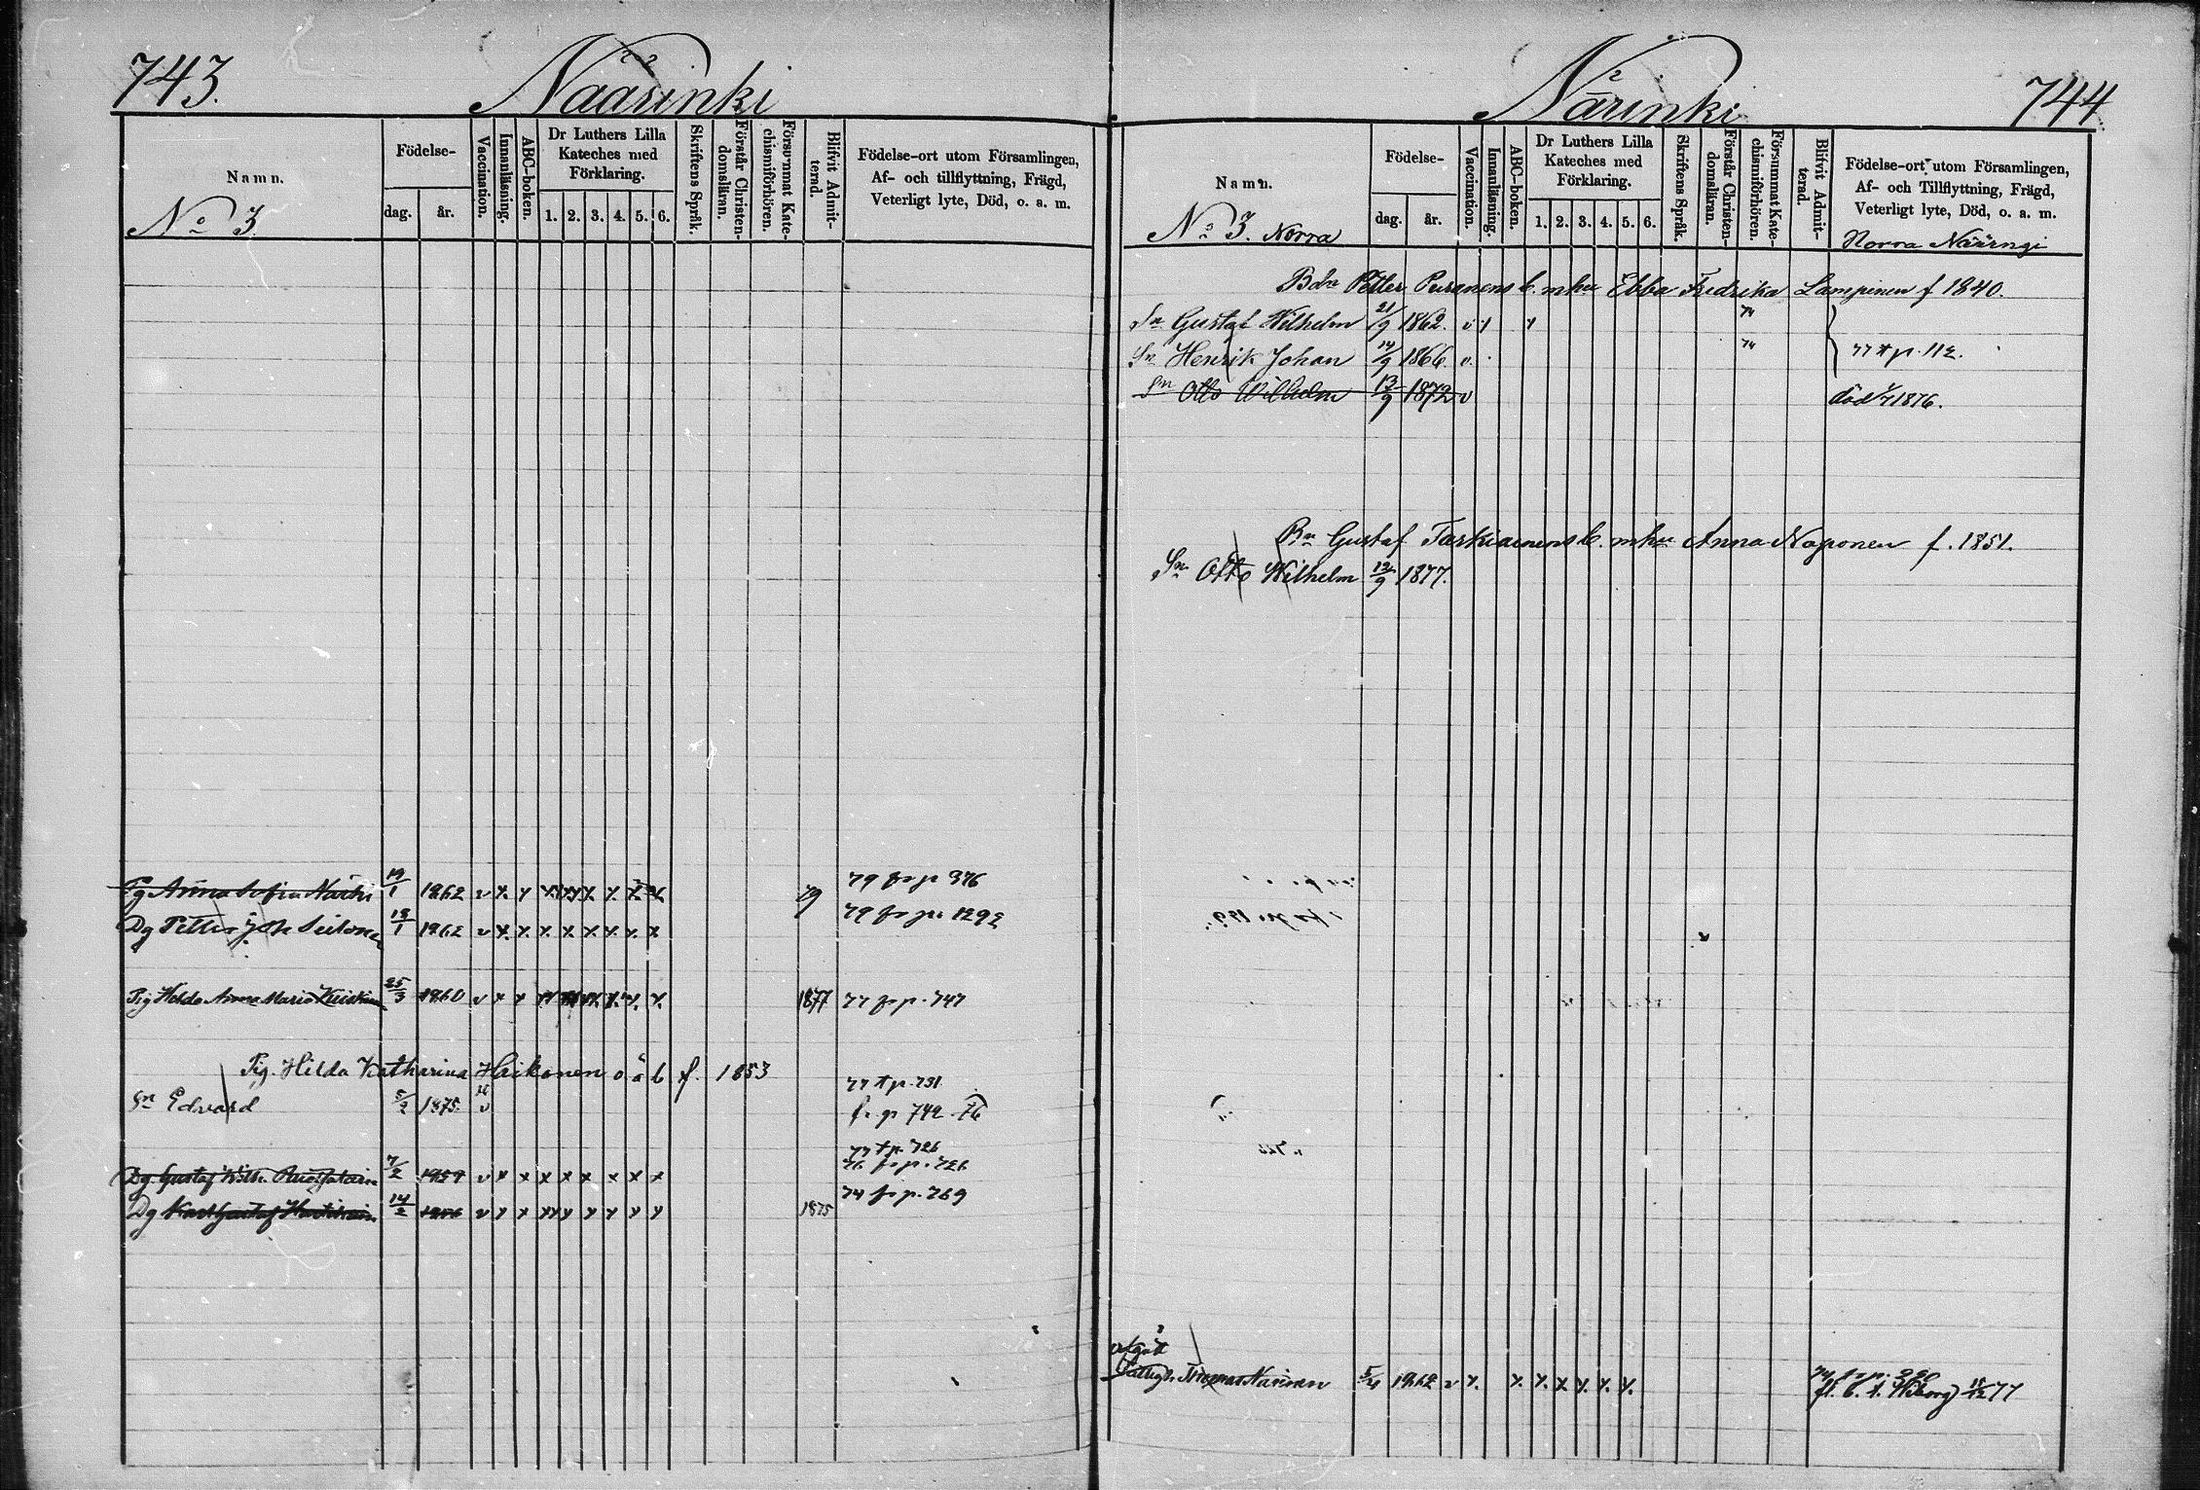 743.
Näärinki
Namn.
Födelse-
dag.
år.
Vaccination.
Innanläsning.
ABC-boken.
Dr Luthers Lilla
Kateches med
Förklaring.
1. 2. 3. 4. 5. 6.
Skriftens Språk.
Förstår Christen-
domsläran.
Försummat Kate-
chismiförhören.
Blifvit Admit-
terad.
Födelse-ort utom Församlingen,
Af- och tillflyttning, Frägd,
Veterligt lyte, Död, o. a. m.
No 3
Pg Anna Sofia 19/1 1862 v x x 79 79 fr p 376
Dg Petter Joh 13/1 1862 v x x x x x x x x 79 fr p. 1292
Pig Hilda Anna Maria 25/3 1860 v x x 1877 77 fr p. 747
Pig. Hilda Katharina Haikonen o ä b f. 1853
77 t p. 731
Sn Edvard 5/2 1875. v fr p 742 76
77 t p. 726
76 fr p. 726
Dg Gustaf Wilh. 7/2 1859 v x x x x x x x x
74 fr p. 769
Dg Karl Gustaf 14/2 v x x 1875
744
Närinki
Namn.
Födelse-
dag.
år.
Vaccination.
Innanläsning.
ABC-boken.
Dr Luthers Lilla
Kateches med
Förklaring.
1. 2. 3. 4. 5. 6.
Skriftens Språk.
Förstår Christen-
domsläran.
Försummat Kate-
chismiförhören.
Blifvit Admit-
terad.
Födelse-ort utom Församlingen,
Af- och Tillflyttning, Frägd,
Veterligt lyte, Död, o. a. m.
No 3. Norra
Norra Näärngi
Bdn Petter Puranens b. m hu Ebba Fredrika Lampinen f 1840.
Sn Gustaf Wilhelm 21/9 1862. v x 74
Sn Henrik Johan 14/9 1866 v. 74 77 t p. 112.
Sn Otto Wilhelm 13/9 1872 v död 1876.
Bn Gustaf Tarkiainens b. m hu Anna Noponen f. 1851.
Sn Otto Wilhelm 12/9 1877.
utgått
Thomas 5/4 1862 v x. x. x. x. x. x. x. fl. t. Wiborg 77